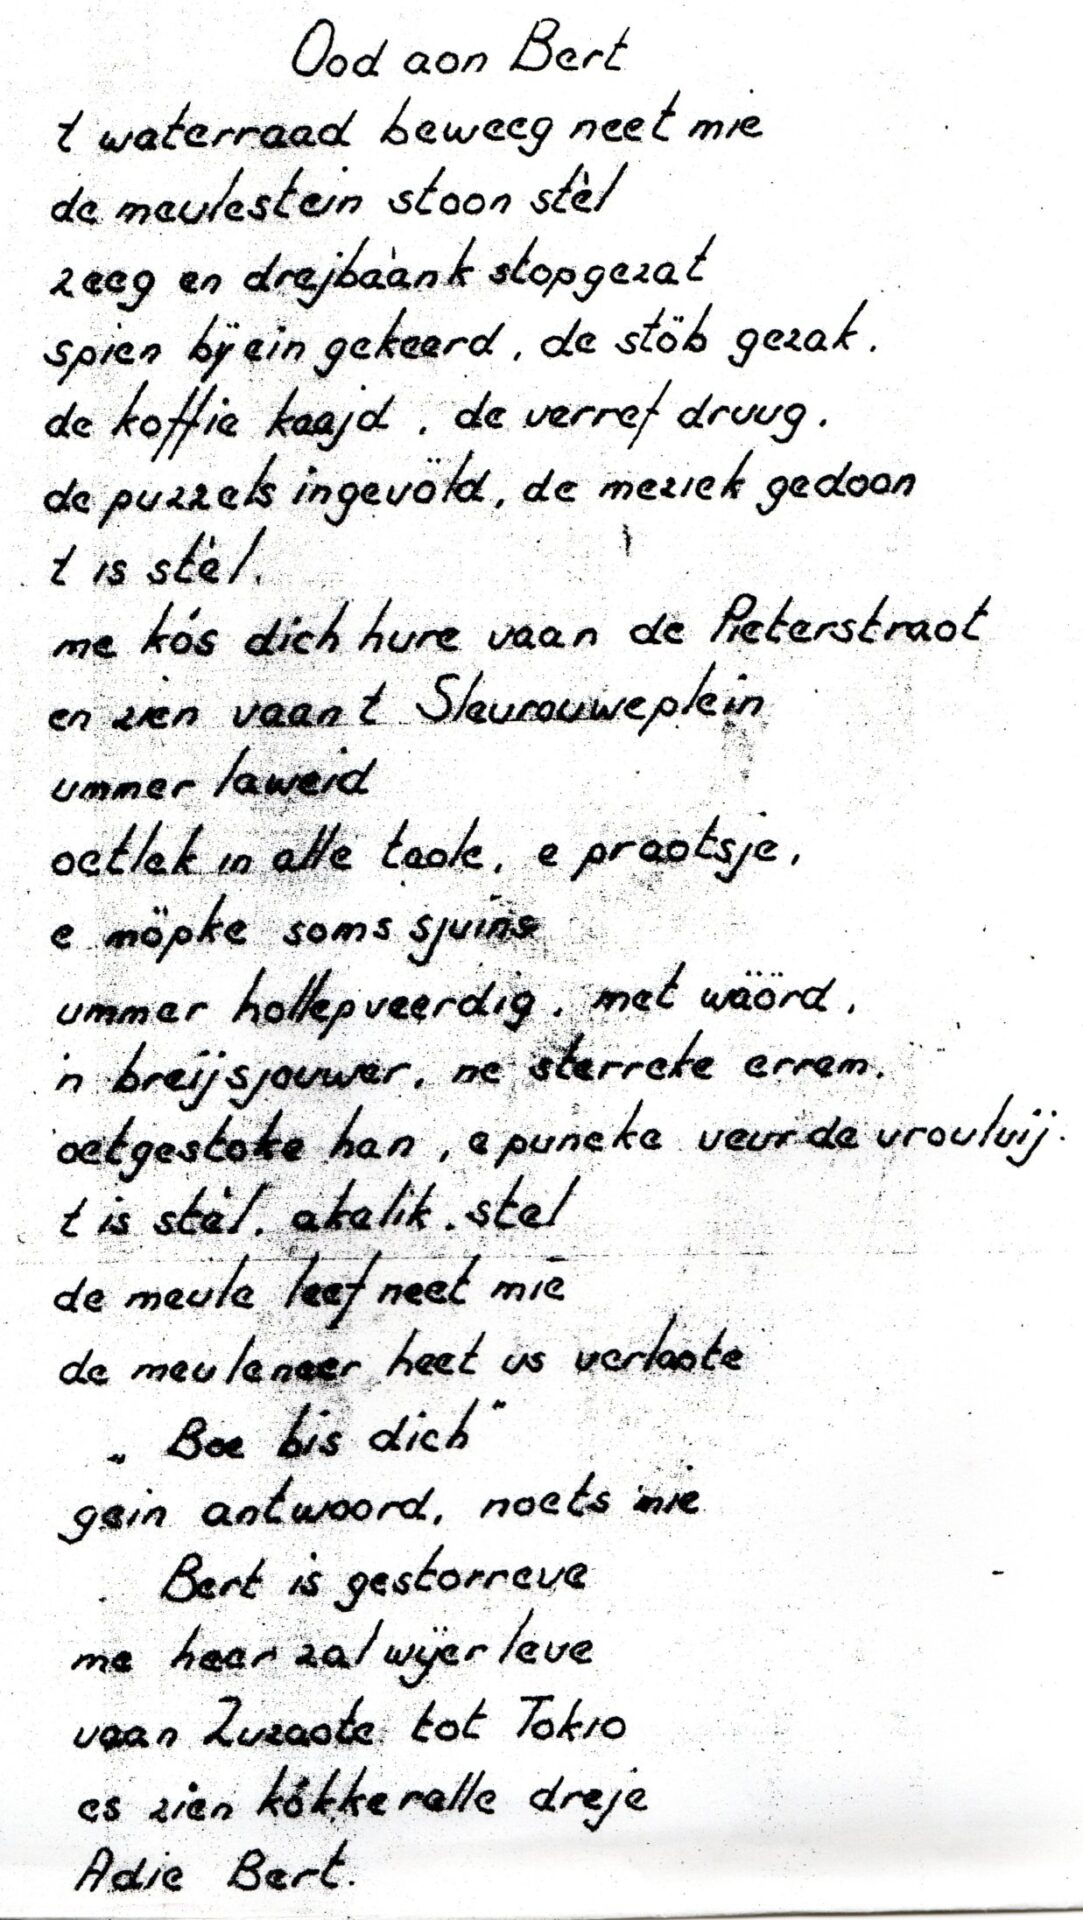 Ood aon Bert
t waterraad beweeg neet mie
de meulestein stoon stèl
zeeg en drejbàànk stopgezat
spien bÿein gekeerd, de stöb gezak.
de koffie kaajd, de verref druug.
de puzzels ingevöld, de meziek gedoon
t is stèl.
me kós dich hure vaan de Pieterstraot
en zien vaan t Slevrouweplein
ummer laweid
oetlek in alle taole, e praotsje,
e möpke soms sjuins
ummer hollepveerdig, met wäörd,
'n breijsjouwer, ne sterreke errem.
oetgestoke han, e puneke veur de vrouluij.
t is stèl, akelik. stel
de meule leef neet mie
de meuleneer heet us verlaote
„ Boe bis dich"
gein antwoord, noets mie
Bert is gestorreve
me heer zal wÿer leve
vaan Zuzaote tot Tokio
es zien kókkerelle dreje
Adie Bert.